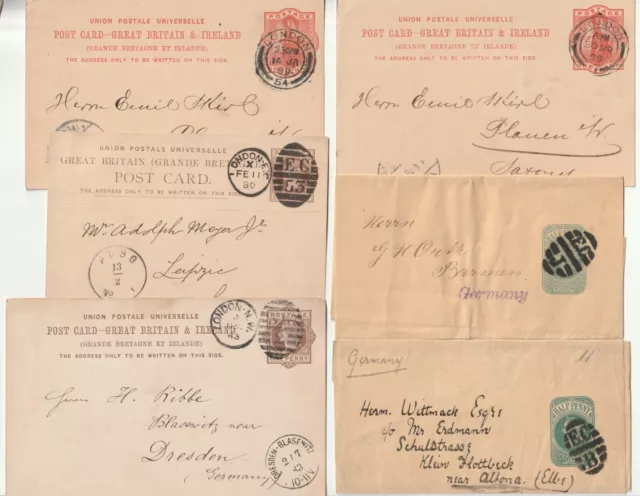 UNION POSTALE UNIVERSELLE
POST CARD-GREAT BRITAIN & IRELAND
(GRANDE BRETAGNE ET IRLANDE)
THE ADDRESS ONLY TO BE WRITTEN ON THIS SIDE.
POSTAGE
LONDON
14 JA
99
54
Herrn Emil
UNION POSTALE UNIVERSELLE
POST CARD-GREAT BRITAIN & IRELAND
(GRANDE BRETAGNE ET IRLANDE)
THE ADDRESS ONLY TO BE WRITTEN ON THIS SIDE.
POSTAGE
LONDON
99
Herrn Emil
Plauen i/V
UNION POSTALE UNIVERSELLE
GREAT BRITAIN (GRANDE BRE
POST CARD.
THE ADDRESS ONLY TO BE WRITTEN ON THIS SIDE.
LONDON
X
FE 11
80
EC
53
Mr. Adolph Meyer Jr
Leipzig
13
2
Herrn
G H Orth
Barmen
Germany
UNION POSTALE UNIVERSELLE
POST CARD-GREAT BRITAIN & IRELAND
(GRANDE BRETAGNE ET IRLANDE)
THE ADDRESS ONLY TO BE WRITTEN ON THIS SIDE.
POSTAGE
PENNY
LONDON-N.W.
83
Herrn H. Ribbe
Blasewitz near
Dresden
(Germany)
DRESDEN-BLASEWITZ
2/7
83
10-11
Germany
11
HALF PENNY
EC
B
Herrn. Wittmack Esqre
c/o Mr Erdmann
Schulstrasse
Klein Flottbeck
near Altona. (Elbe)